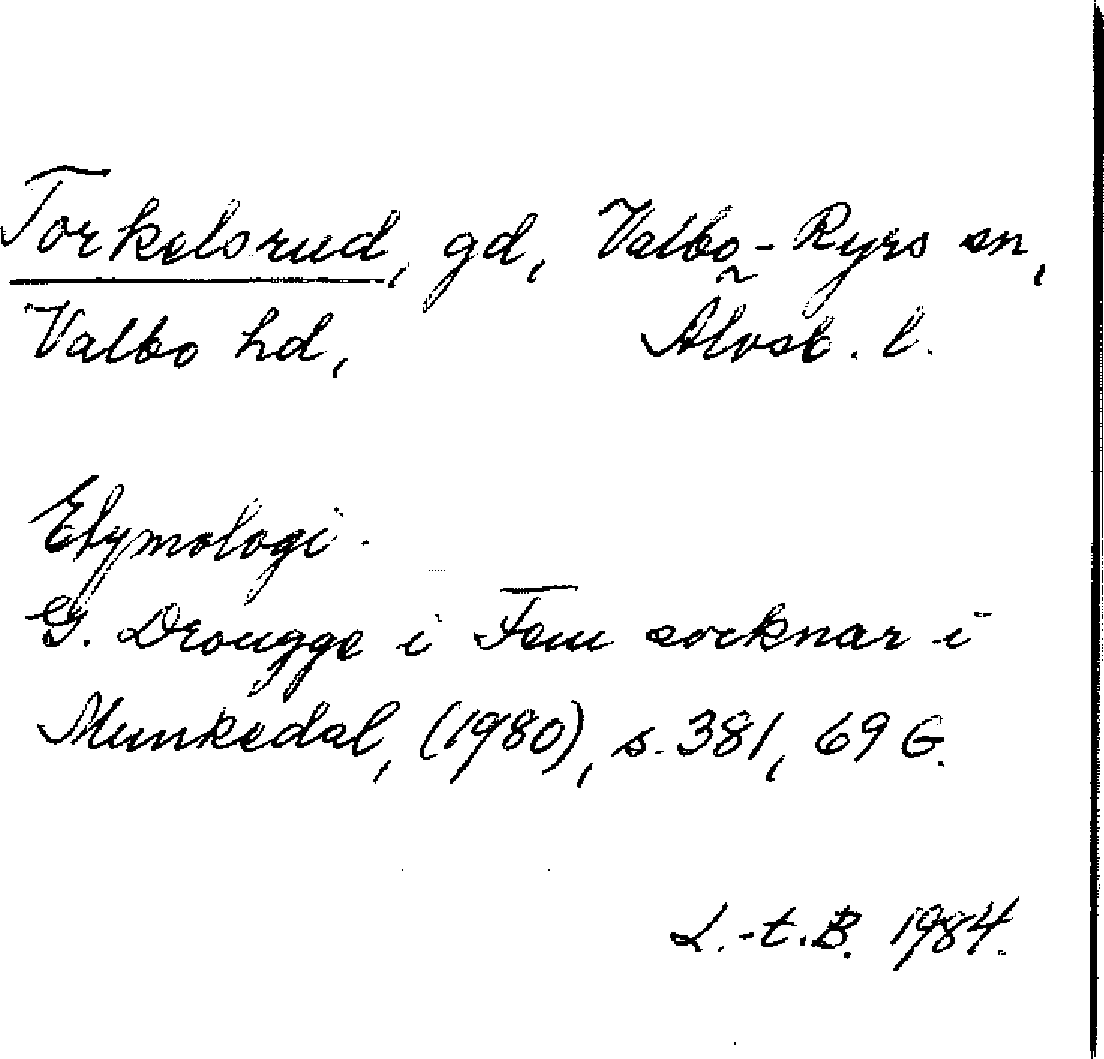 Torkelsrud, gd, Valbo-Ryrs sn,
Valbo hd, Älvsb. l.
Etymologi.
G. Drougge i Fem socknar i
Munkedal, (1980), s. 381, 69 G.
L.-t.B. 1984.